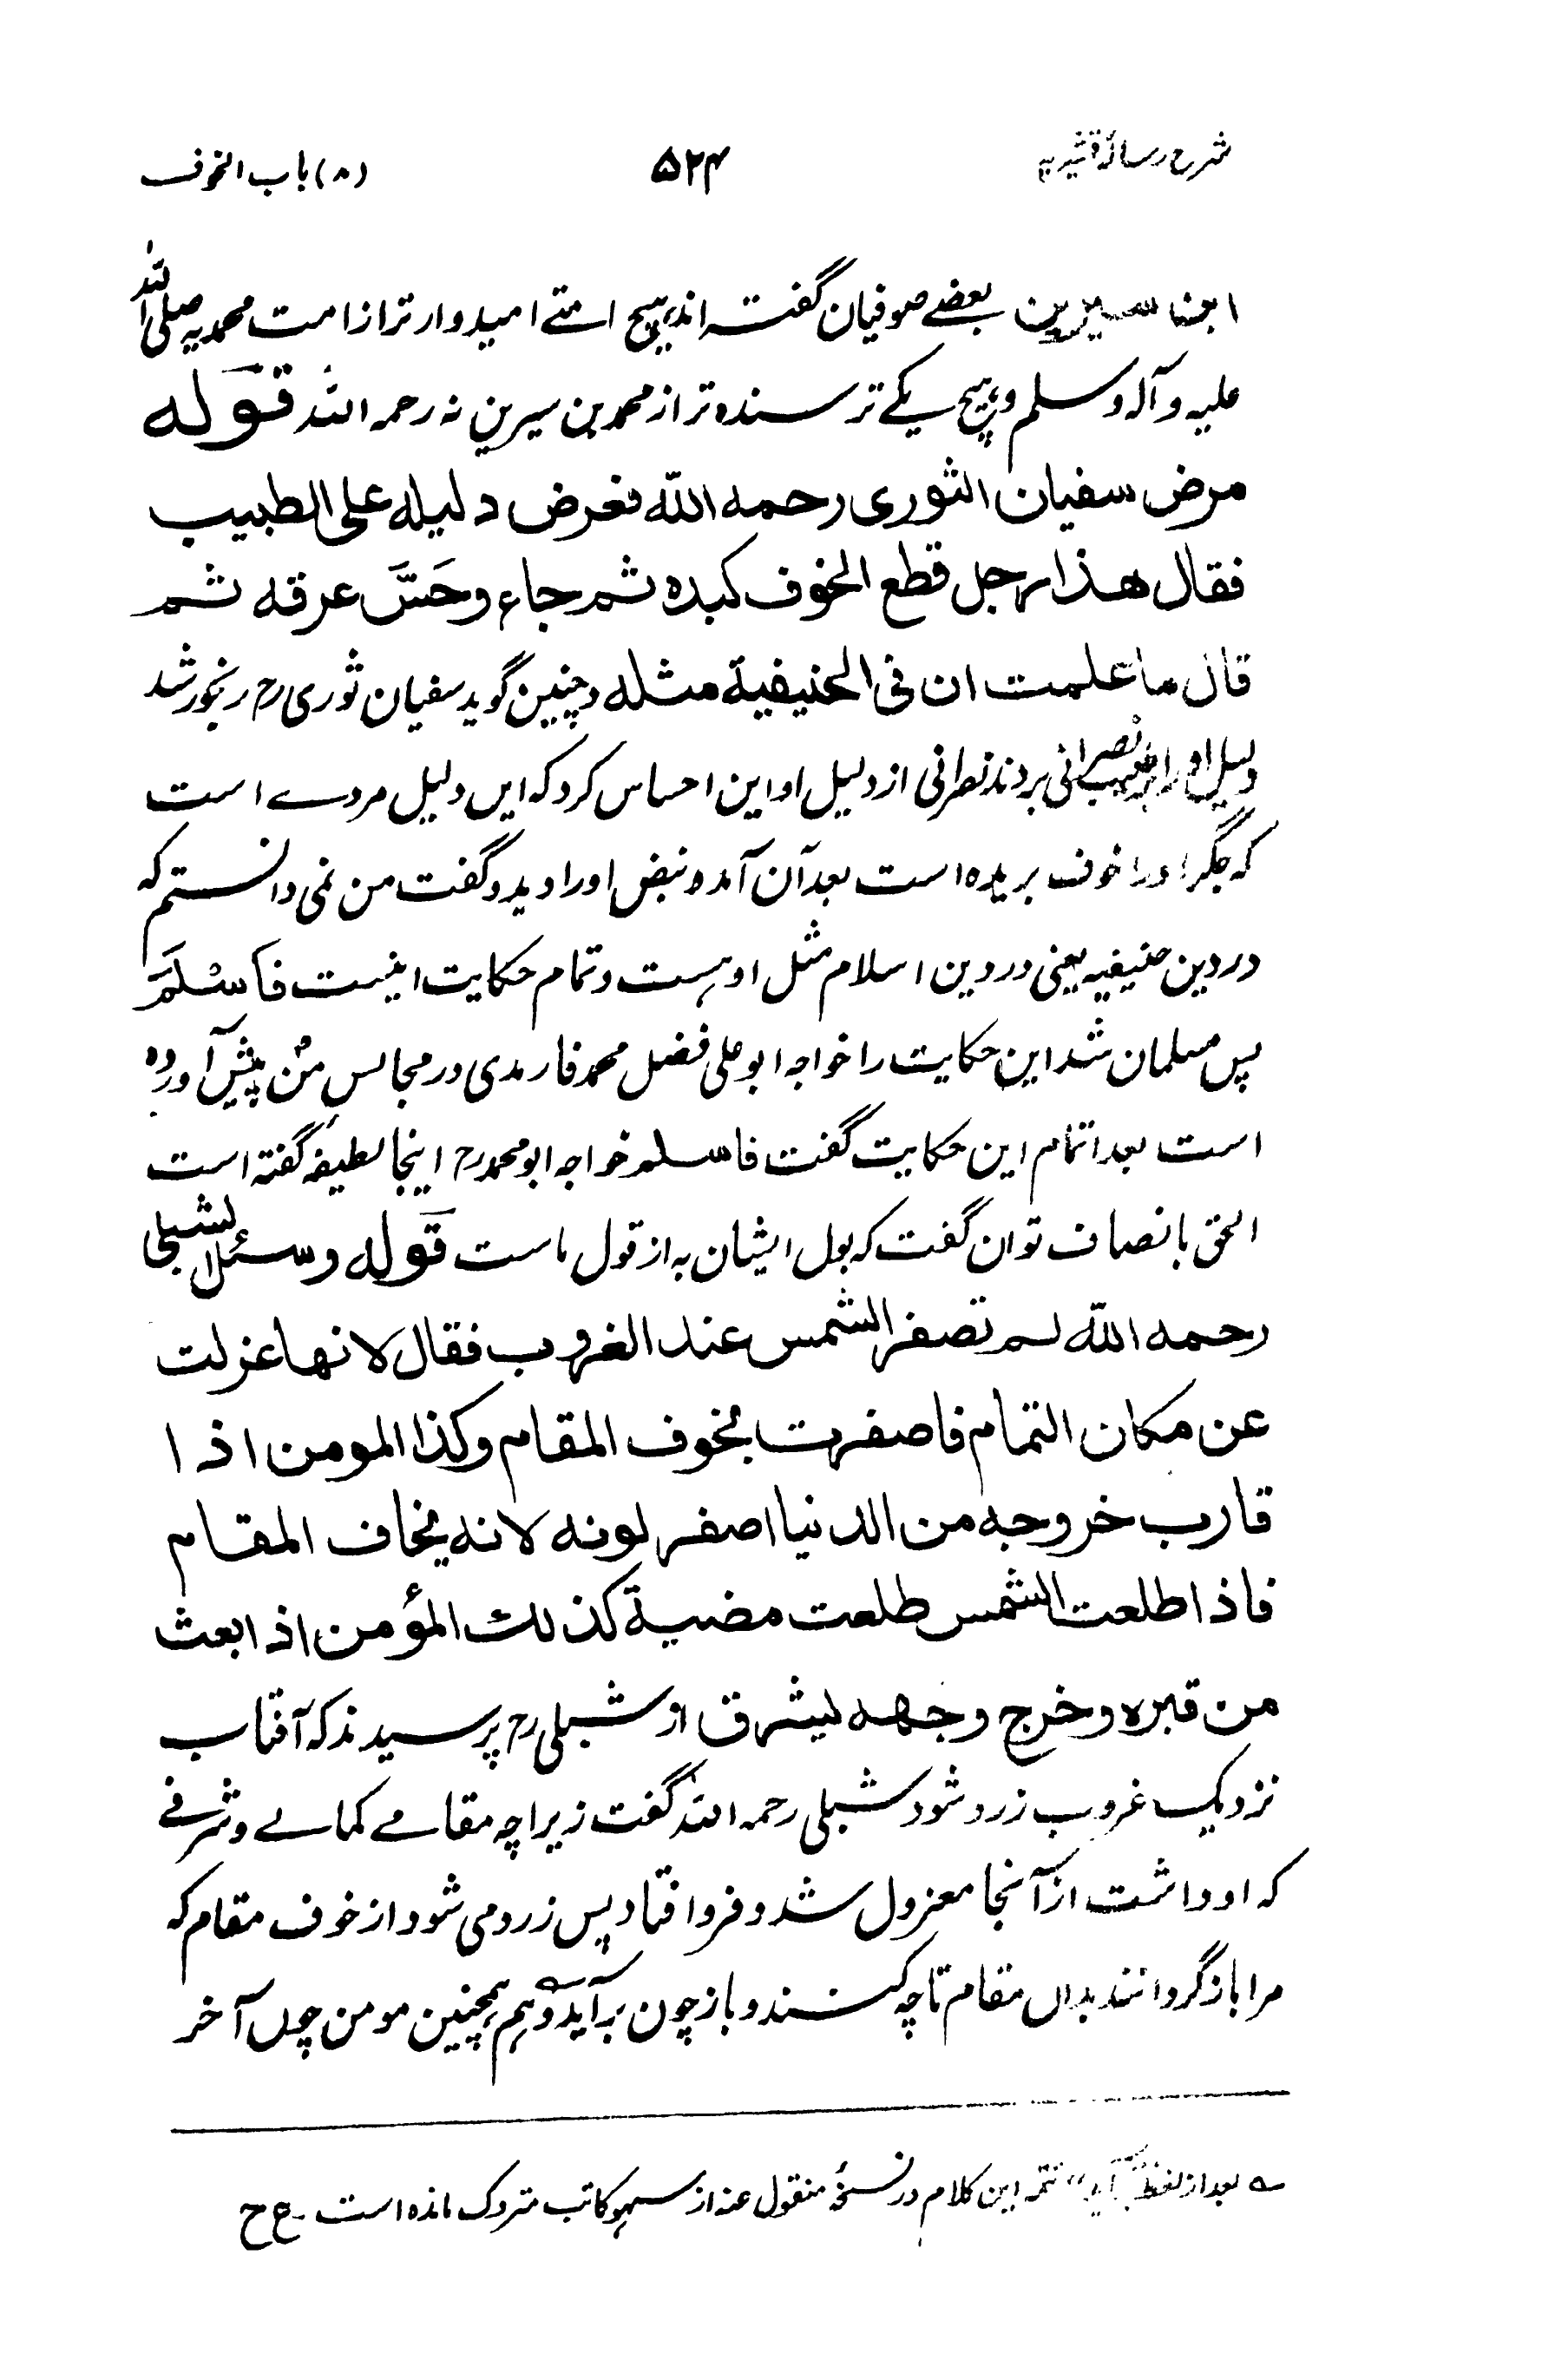 شرح رسالۂ قشیریہ ۵۲۴ (۸) باب الخوف
ابن سیرین بعضے صوفیان گفتہ اند ہیچ امتے امیدوار تر از امت محمدیہ صلی اللہ
علیہ و آلہ و سلم و ہیچ یکے ترسندہ تر از محمد بن سیرین نہ رحمہ اللہ قولہ
مرض سفیان الثوری رحمہ اللّٰہ فعرض دلیلہ علی الطبیب
فقال ھذا رجل قطع الخوف کبدہ ثم جاء و حَسَّ عرقہ ثم
قال ما علمت ان فی الحنیفیة مثلہ وچنین گوید سفیان ثوری رح رنجور شد
دلیل او را بر طبیب نصرانی بردند نصرانی از دلیل او این احساس کرد کہ ایں دلیل مردے است
کہ جگر او را خوف بریدہ است بعد آن آمدہ نبض او را دید و گفت من نمی دانستم کہ
در دین حنیفیہ یعنی در دین اسلام مثل او ہست و تمام حکایت اینست فاَسْلَمَ
پس مسلمان شد این حکایت را خواجہ ابو علی فضل محمد فارمدی در مجالس من پیش آوردہ
است بعد اتمام این حکایت گفت فاسلم خواجہ ابو محمد رح اینجا لطیفہ گفتہ است
الحق بانصاف توان گفت کہ بول ایشان بہ از قول ماست قولہ و سئل الشبلی
رحمہ اللّٰہ لم تصفر الشمس عند الغروب فقال لانھا عزلت
عن مکان التمام فاصفرت بخوف المقام و کذا المومن اذا
قارب خروجہ من الدنیا اصفر لونہ لانہ یخاف المقام
فاذا طلعت الشمس طلعت مضیة کذلك المؤمن اذا بعث
من قبرہ و خرج وجھہ لیشرق از شبلی رح پرسیدند کہ آفتاب
نزدیک غروب زرد شود شبلی رحمہ اللہ گفت زیراچہ مقامے کمالے و شرفے
کہ او داشت از آنجا معزول شد و فرو افتاد پس زرد می شود از خوف مقام کہ
مرا باز گردانند بداں مقام تا چہ کنند و باز چون برآید و ہم ہمچنین مومن چوں آخر
ـہ بعد از لفظ "برآید" تتمہ این کلام در نسخۂ منقول عنہ از سہو کاتب متروک ماندہ است - ع ح